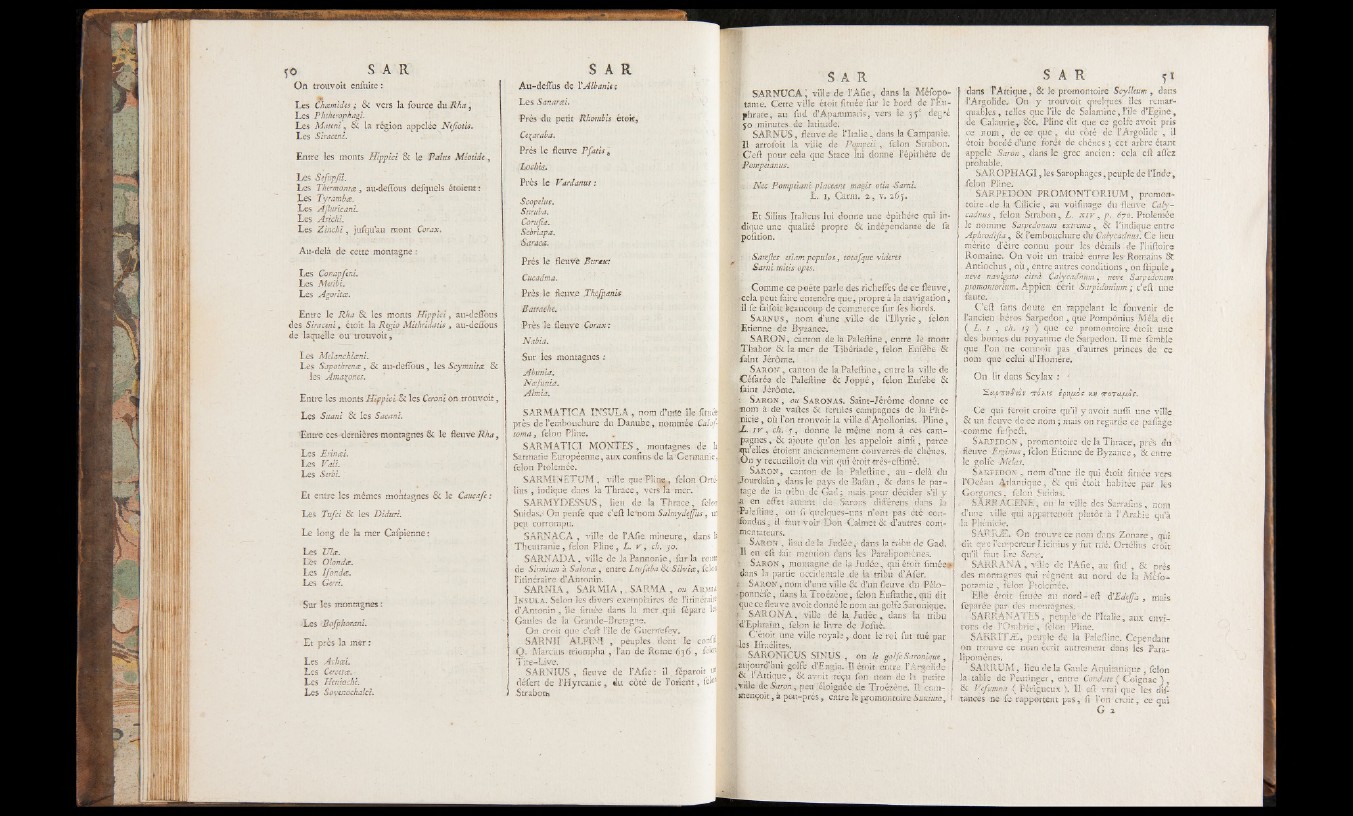 50 S A R
On trouvoit ensuite :
Les Chamides ; & vers la source du Rha,
Les Phtheirophagi.
Les Materi, & la région appelée Nesiotis.
Les Siraceni.
Entre les monts Hippici & le Palus Méotide,
Les Thermontæ, au-dessous desquels étoient :
Les Tyrambæ.
Les Asturicani.
Les Arichi.
Les Zinchi, jusqu'au mont Corax.
Au-delà de cette montagne :
Les Conapseni.
Les Metibi.
Les Agoritæ.
Entre le Rha & les monts Hippici, au-dessous
des Siraceni, étoit la Regio Mithridatis, au-dessous
de laquelle on trouvoit,
Les Melanchlæni.
Les Sapothrenæ, & au-dessous, les Scymnitæ &
les Amazones.
Entre les monts Hippici & les Ceroni on trouvoit,
Les Suani & les Sacani.
Entre ces dernières montagnes & le fleuve Rha,
Les Erinæi.
Les Vali.
Les Serbi.
Et entre les mêmes montagnes & le Caucase :
Les Tusci & les Diduri.
Le long de la mer Caspienne :
Les Udæ.
Les Olondæ.
Les Isondæ.
Les Gerri.
Sur les montagnes :
Les Bosphorani.
Et près la mer :
Les Achæi.
Les Cercetæ.
Les Heniochi.
Les Suanocolchi.
S A R
Au-dessus de l'Albanie :
Les Sanaræi.
Près du petit Rhombis étoit,
Cezaraba.
Près le fleuve Psatis,
Près le Vardanus :
Scopelus.
Suruba.
Corusia.
Seraca.
Près le fleuve Burax :
Cucadma.
Près le fleuve Thespanis
Batrache.
Près le fleuve Corax :
Nabia.
Sur les montagnes :
Abunis.
Nasunia.
Almia.
SARMATICA INSULA, nom d'une île située
près de l'embouchure du Danube, nommée
selon Pline.
SARMATICI MONTES, montagnes de la
Sarmatie Européenne, aux confins de la Germanie,
selon Ptolemée.
SARMINETUM, ville que Pline, selon
indique dans la Thrace, vers la mer.
SARMYDESSUS, lieu de la Thrace, selon
Suidas. On pense que c'est le nom Salmydessus, un
peu corrompu.
SARNACA, ville de l'Asie mineure, dans la
Theutranie, selon Pline, L. v, ch. 30.
SARNADA, ville de la Pannonie, sur la route
de Sirmium à Salonæ, entre Leusaba & Silviæ, selon
l'itinéraire d'Antonin.
SARNIA, SARMIA, SARMA, ou
INSULA. Selon les divers exemplaires de l'itinéraire
d'Antonin, île située dans la mer qui sépare les
Gaules de la Grande-Bretagne.
On croit que c'est l'île de Guernesey.
SARNII ALPINI, peuples dont le consul
Q. Marcius triompha, l'an de Rome 636, selon
Tite-Live.
SARNIUS, fleuve de l'Asie : il séparoit un
désert de l'Hyrcanie, du côté de l'orient, selon
Strabon.
S A R
SARNUCA, ville de l'Asie, dans la Mésopo-
tame. Cette ville étoit située sur le bord de l'Eu-
phrate, au sud d'Apammaris, vers le 35e degré
50 minutes de latitude.
SARNUS, fleuve de l'Italie, dans la Campanie.
Il arrosoit la ville de Pompeii, selon Strabon.
C'est pour cela que Stace lui donne l'épithète de
Pompeianus.
Nec Pompeiani placeant magis otia Sarni.
L. 1, Carm. 2, v. 265.
Et Silius Italicus lui donne une épithète qui in-
dique une qualité propre & indépendante de sa
position.
Sarrastes etiam populos, totasque videres
Sarni mitis opes.
Comme ce poëte parle des richesses de ce fleuve,
cela peut faire entendre que, propre à la navigation,
il se faisoit beaucoup de commerce sur ses bords.
SARNUS, nom d'une ville de l'Illyrie, selon
Etienne de Byzance.
SARON, canton de la Palestine, entre le mont
Thabor & la mer de Tibériade, selon Eusèbe &
saint Jérôme.
SARON, canton de la Palestine, entre la ville de
Césarée de Palestine & Joppé, selon Eusèbe &
saint Jérôme.
SARON, ou SARONAS. Saint-Jérôme donne ce
nom à de vastes & fertiles campagnes de la Phé-
nicie, où l'on trouvoit la ville d'Apollonias. Pline,
L. IV, ch. 5, donne le même nom à ces cam-
pagnes, & ajoute qu'on les appeloit ainsi, parce
qu'elles étoient anciennement couvertes de chênes.
On y recueilloit du vin qui étoit très-estimé.
SARON, canton de la Palestine, au-delà du
Jourdain, dans le pays de Basan, & dans le par-
tage de la tribu de Gad; mais pour décider s'il y
a en effet autant de Sarons différens dans la
Palestine, ou si quelques-uns n'ont pas été con-
fondus, il faut voir Don Calmet & d'autres com-
mentateurs.
SARON, lieu de la Judée, dans la tribu de Gad.
Il en est fait mention dans les Paralipomènes.
SARON, montagne de la Judée, qui étoit située
dans la partie occidentale de la tribu d'Aser.
SARON, nom d'une ville & d'un fleuve du Pélo-
ponnèse, dans la Troézène, selon Eustathe, qui dit
que ce fleuve avoit donné le nom au golfe Saronique.
SARONA, ville de la Judée, dans la tribu
d'Ephraïm, selon le livre de Josué.
C'étoit une ville royale, dont le roi fut tué par
les Israélites.
SARONICUS SINUS, ou le golfe Saronique,
aujourd'hui golfe d'Engia. Il étoit entre l'Argolide
& l'Attique, & avoit reçu son nom de la petite
ville de Saron, peu éloignée de Troézène. Il com-
mençoit, à peu-près, entre le promontoire Sunium,
S A R 51
dans l'Attique, & le promontoire Scylleum, dans
l'Argolide. On y trouvoit quelques îles remar-
quables, telles que l'île de Salamine, l'île d'Egine,
de Calaurie, &c. Pline dit que ce golfe avoit pris
ce nom, de ce que, du côté de l'Argolide, il
étoit bordé d'une forêt de chênes ; cet arbre étant
appelé Saron, dans le grec ancien : cela est assez
probable.
SAROPHAGI, les Sarophages, peuple de l'Inde,
selon Pline.
SARPEDON PROMONTORIUM, promon-
toire de la Cilicie, au voisinage du fleuve Caly-
cadnus, selon Strabon, L. XIV, p. 670. Ptolemée
le nomme Sarpedonium extrema, & l'indique entre
Aphrodisia, & l'embouchure du Calycadnus. Ce lieu
mérite d'être connu pour les détails de l'histoire
Romaine. On voit un traité entre les Romains &
Antiochus, où, entre autres conditions, on stipule,
neve navigato citrà Calycadnum, neve Sarpedonium
promontorium. Appien écrit Sarpidonium ; c'est une
faute.
C'est sans doute en rappelant le souvenir de
l'ancien héros Sarpedon, que Pompónius Méla dit
( L. 1, ch. 13 ) que ce promontoire étoit une
des bornes du royaume de Sarpedon. Il me semble
que l'on ne connoît pas d'autres princes de ce
nom que celui d'Homère.
On lit dans Scylax :
Ce qui feroit croire qu'il y avoit aussi une ville
& un fleuve de ce nom ; mais on regarde ce passage
comme suspect.
SARPEDON, promontoire de la Thrace, près du
fleuve Erginus, selon Etienne de Byzance, & entre
le golfe Melas.
SARPEDON, nom d'une île qui étoit située vers
l'Océan Atlantique, & qui étoit habitée par les
Gorgones, selon Suidas.
SARRACENE, ou la ville des Sarrasins, nom
d'une ville qui appartenoit plutôt à l'Arabie qu'à
la Phénicie.
SARRÆ. On trouve ce nom dans Zonare, qui
dit que l'empereur Licinius y fut tué. Ortélius croit
qu'il faut lire Serræ.
SARRANA, ville de l'Asie, au sud, & près
des montagnes qui règnent au nord de la Méso-
potamie, selon Ptolemée.
Elle étoit située au nord-est d'Edessa, mais
séparée par des montagnes.
SARRANATES, peuple de l'Italie, aux envi-
rons de l'Ombrie, selon Pline.
SARRITÆ, peuple de la Palestine. Cependant
on trouve ce nom écrit autrement dans les Para-
lipomènes.
SARRUM, lieu de la Gaule Aquitanique, selon
la table de Peutinger, entre Condate ( Coignac ),
& Vesonna ( Périgueux ). Il est vrai que les dis-
tances ne se rapportent pas, si l'on croit, ce qui
G 2